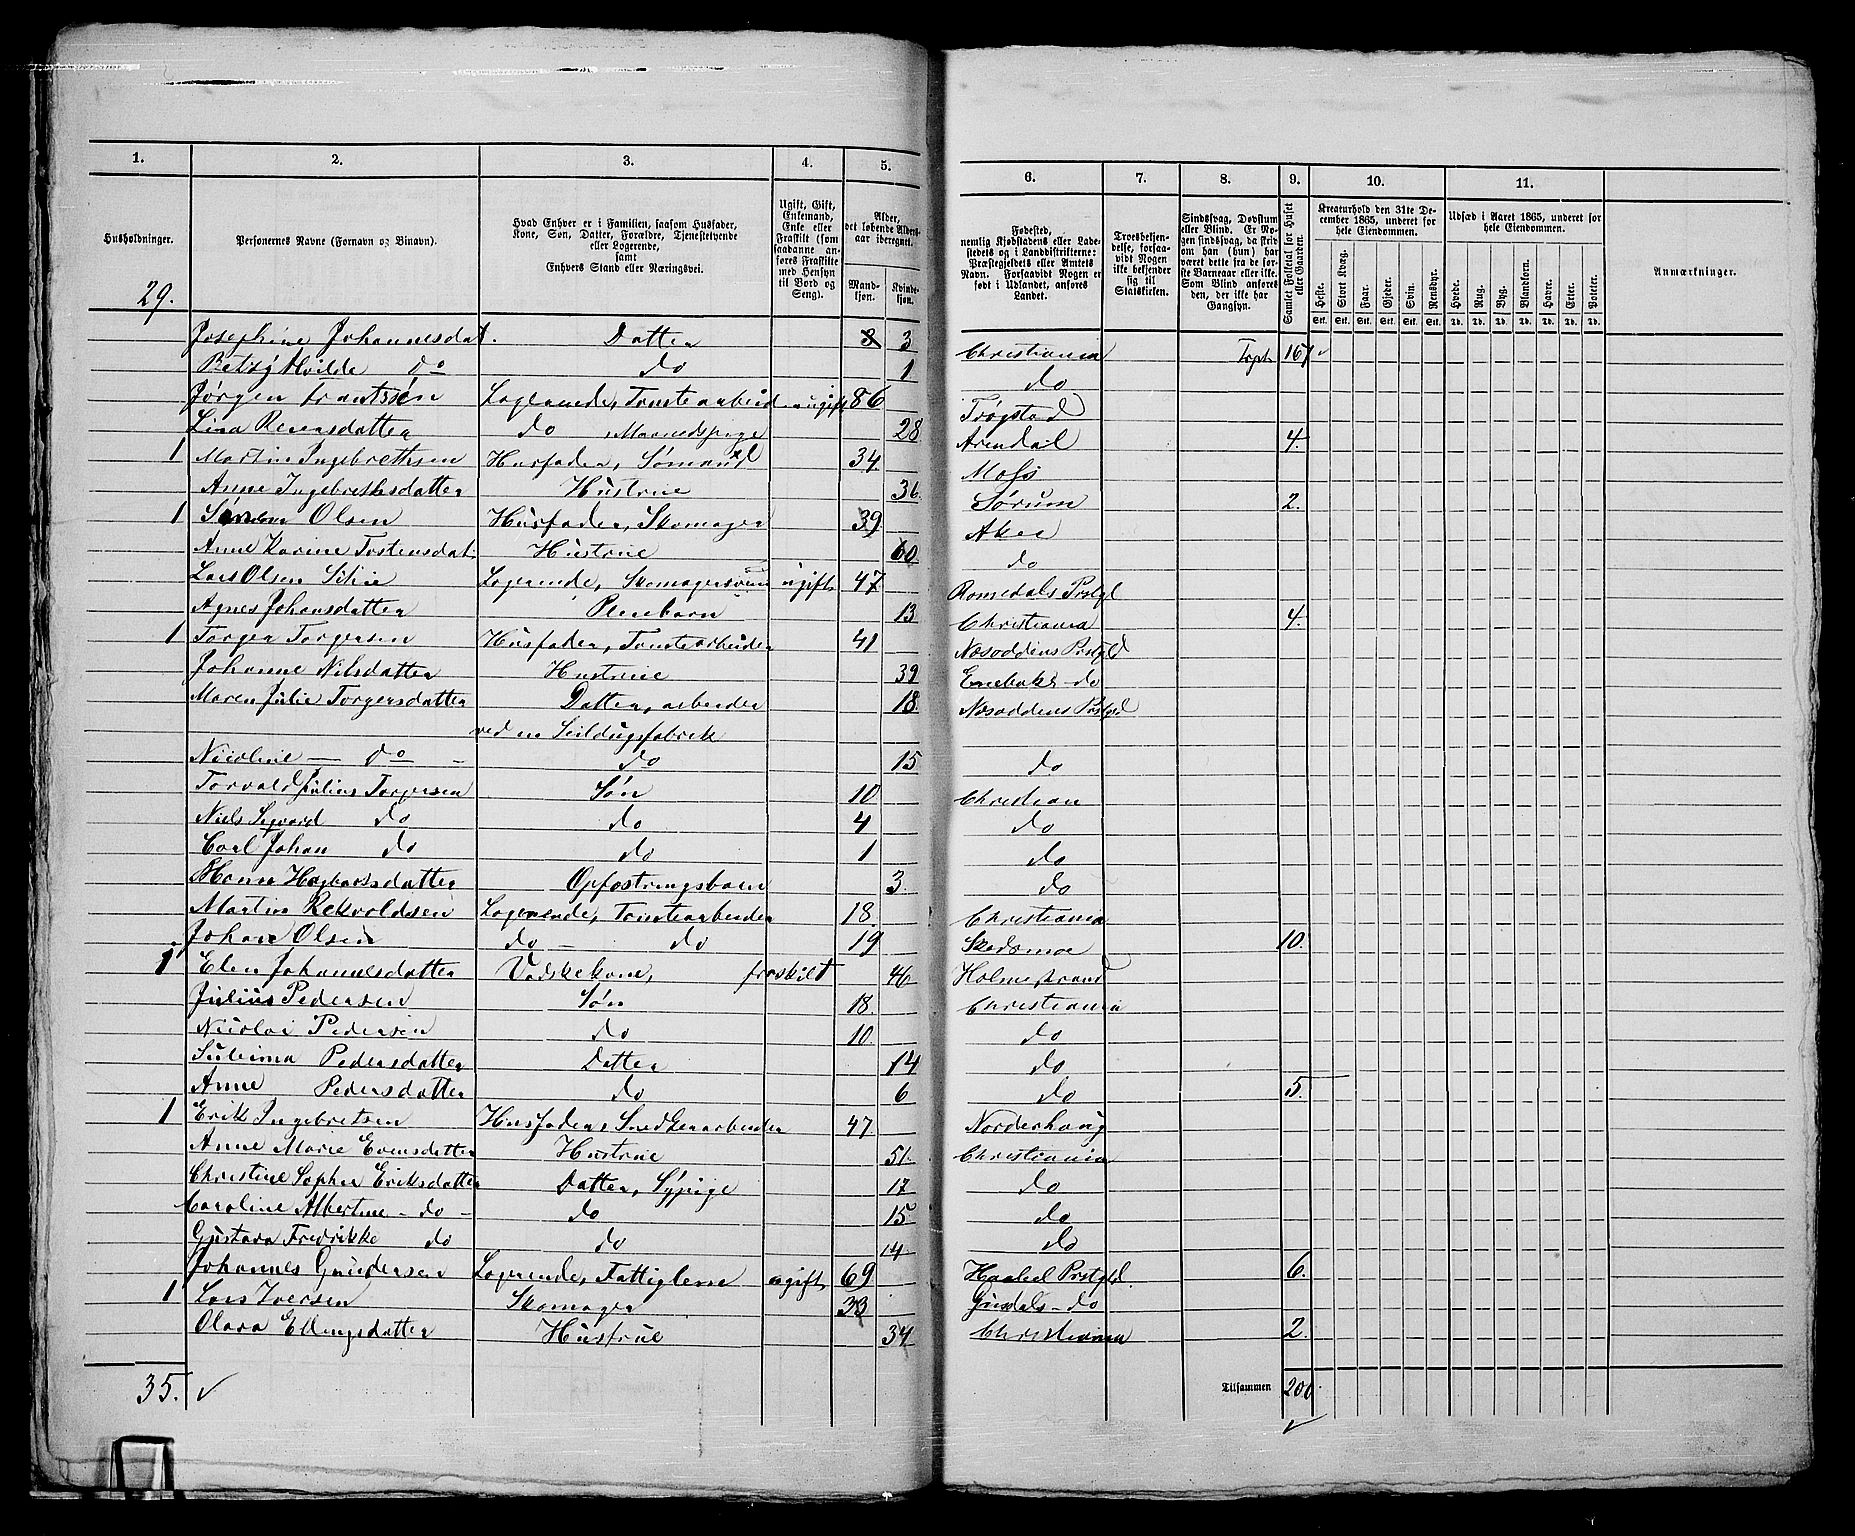 1. 2. 3. 4. 5. 6. 7. 8. 9. 10. 11.
Husholdninger.
Personernes Navne (Fornavn og Binavn).
Hvad Enhver er i Familien, saasom Husfader, Kone, Søn, Datter, Forældre, Tjenestetyende eller Logerende, samt Enhvers Stand eller Næringsvei.
Ugift, Gift, Enkemand, Enke eller Fraskilt (som saadanne anføres Fraskilte med Hensyn til Bord og Seng).
Alder, det løbende Aldersaar iberegnet.
Mandkjøn. Kvindekjøn.
Fødested, nemlig Kjøbstadens eller Ladestedets og i Landdistrikterne: Præstegjeldets eller Amtets Navn. Forsaavidt Nogen er født i Udlandet, anføres Landet.
Troesbekjendelse, forsaavidt Nogen ikke bekjender sig til Statskirken.
Sindssvag, Døvstum eller Blind. Er Nogen sindssvag, da skrives om han (hun) har været dette fra de første Barneaar eller ikke. Som Blind anføres den, der ikke har Gangsyn.
Samlet Folketal for Huset eller Gaarden.
Kreaturhold den 31te December 1865, underet for hele Eiendommen.
Heste. Stort Kvæg. Faar. Gjeder. Svin. Rensdyr.
Stk. Stk. Stk. Stk. Stk. Stk.
Udsæd i Aaret 1865, underet for hele Eiendommen.
Hvede. Rug. Byg. Blandkorn. Havre. Erter. Poteter.
Td. Td. Td. Td. Td. Td. Td.
Anmærkninger.
29.
Josephine Johannesdat. Datter 3 Christiania Tspt 167
Betzy Hvilde do do 1 do
Jørgen Frantssen Logerende, Tomtearbeid ugift 86 Trøgstad
Lina Reiersdatter do Maanedspige 28 Arendal 4.
1 Martin Ingebrethsen Husfader, Sømand 34 Moss
Anne Ingebrethsdatter Hustrue 36. Sørum 2.
1 Olsen Husfader, Skomager 39 Aker
Anne Karine Torstensdat. Hustrue 60 do
Lars Olsen Logerende, Skomagersvend ugift 47 Romedals Prstgl
Agnes Johansdatter Pleiebarn 13 Christiania 4.
1 Torger Torgersen Husfader, Tomtearbeider 41 Næsoddens Prstgld
Johanne Nilsdatter Hustrue 39 Enebaks - do
Maren Julie Torgersdatter Datter, arbeider 18. Næsoddens Prstgld
ved en Seildugsfabrik
Nicoline — do - do 15 do
Torvald Julius Torgersen Søn 10 Christian
Niels Sigvard do do 4 do
Carl Johan do do 1 do
Hanna Hagbartsdatter Opfostringsbarn 3 do
Martin Rekvoldsen Logerende, Tomtearbeider 18. Christiania
Johan Olsen do - do 19 Skedsmoe 10.
1 Elen Johannesdatter Vadskekone, fraskilt 46 Holmestrand
Julius Pedersen Søn 18. Christiania
Nicolai Pedersen do 10 do
Pedersdatter Datter 14 do
Anne Pedersdatter do 6 do 5.
1 Erik Ingebretsen Husfader, Snedkerarbeider 47 Norderhoug
Anne Marie Evensdatter Hustrue 51 Christiania
Christine Sophie Eriksdatter Datter, Sypige 17 do
Caroline Albertine - do - do 15 do
Gustava Fredrikke do do 14 do
Johannes Gundersen Logerende, Fattiglem ugift 69 Prstgld. 6.
1 Lars Iversen Skomager 33 Gusdals - do
Olava Ellingsdatter Hustrue 34 Christiania 2.
35. ✓ Tilsammen 200